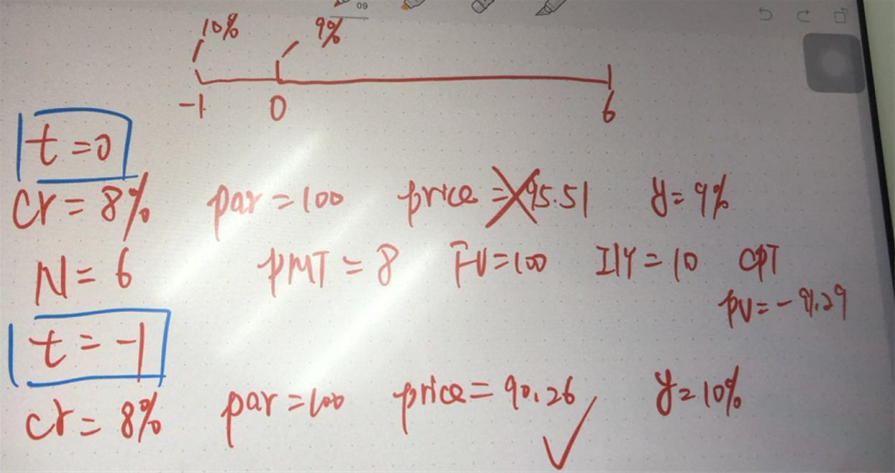 10% 9%
-1 0 6
t=0
Cr=8% par=100 price=95.51 y=9%
N=6 PMT=8 FV=100 I/Y=10 CPT
PV=-91.29
t=-1
Cr=8% par=100 price=90.26 y=10%